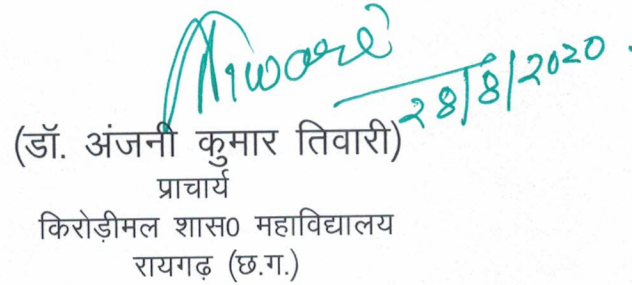 Tiwari
28/8/2020
(डॉ. अंजनी कुमार तिवारी)
प्राचार्य
किरोड़ीमल शास0 महाविद्यालय
रायगढ़ (छ.ग.)